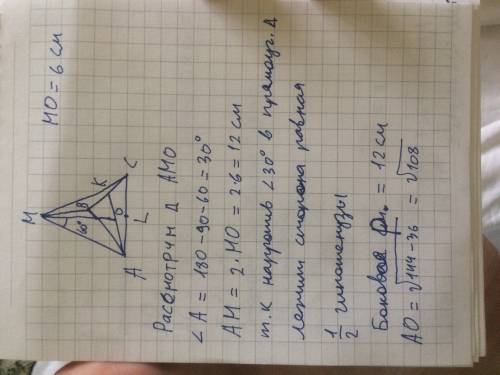 M
MO = 6 см
60°
B
K
A
O
C
L
Рассмотрим Δ AMO
∠A = 180-90-60 = 30°
AM = 2·MO = 2·6 = 12 см
т.к напротив ∠30° в прямоуг. Δ
лежит сторона равная
1/2 гипотенузы
Боковая = 12 см
AO = √144-36 = √108